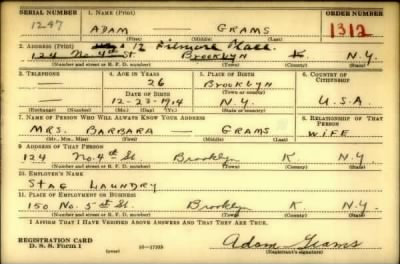 SERIAL NUMBER 1. NAME (Print) ORDER NUMBER
1247 ADAM — GRAMS 1312
(First) (Middle) (Last)
2. ADDRESS (Print) 12 Filmore Place
124 No. 4th St. Brooklyn K N.Y.
(Number and street or R. F. D. number) (Town) (County) (State)
3. TELEPHONE 4. AGE IN YEARS 5. PLACE OF BIRTH 6. COUNTRY OF CITIZENSHIP
— 26 Brooklyn
DATE OF BIRTH (Town or county)
12-23-1914 N.Y. U.S.A.
(Exchange) (Number) (Mo.) (Day) (Yr.) (State or country)
7. NAME OF PERSON WHO WILL ALWAYS KNOW YOUR ADDRESS 8. RELATIONSHIP OF THAT PERSON
MRS. BARBARA — GRAMS WIFE
(Mr., Mrs., Miss) (First) (Middle) (Last)
9. ADDRESS OF THAT PERSON
124 No. 4th St. Brooklyn K N.Y.
(Number and street or R. F. D. number) (Town) (County) (State)
10. EMPLOYER'S NAME
STAG LAUNDRY
11. PLACE OF EMPLOYMENT OR BUSINESS
150 No. 5th St. Brooklyn K N.Y.
(Number and street or R. F. D. number) (Town) (County) (State)
I AFFIRM THAT I HAVE VERIFIED ABOVE ANSWERS AND THAT THEY ARE TRUE.
REGISTRATION CARD
D. S. S. Form 1 (over) 16—17105 Adam Grams
(Registrant's signature)